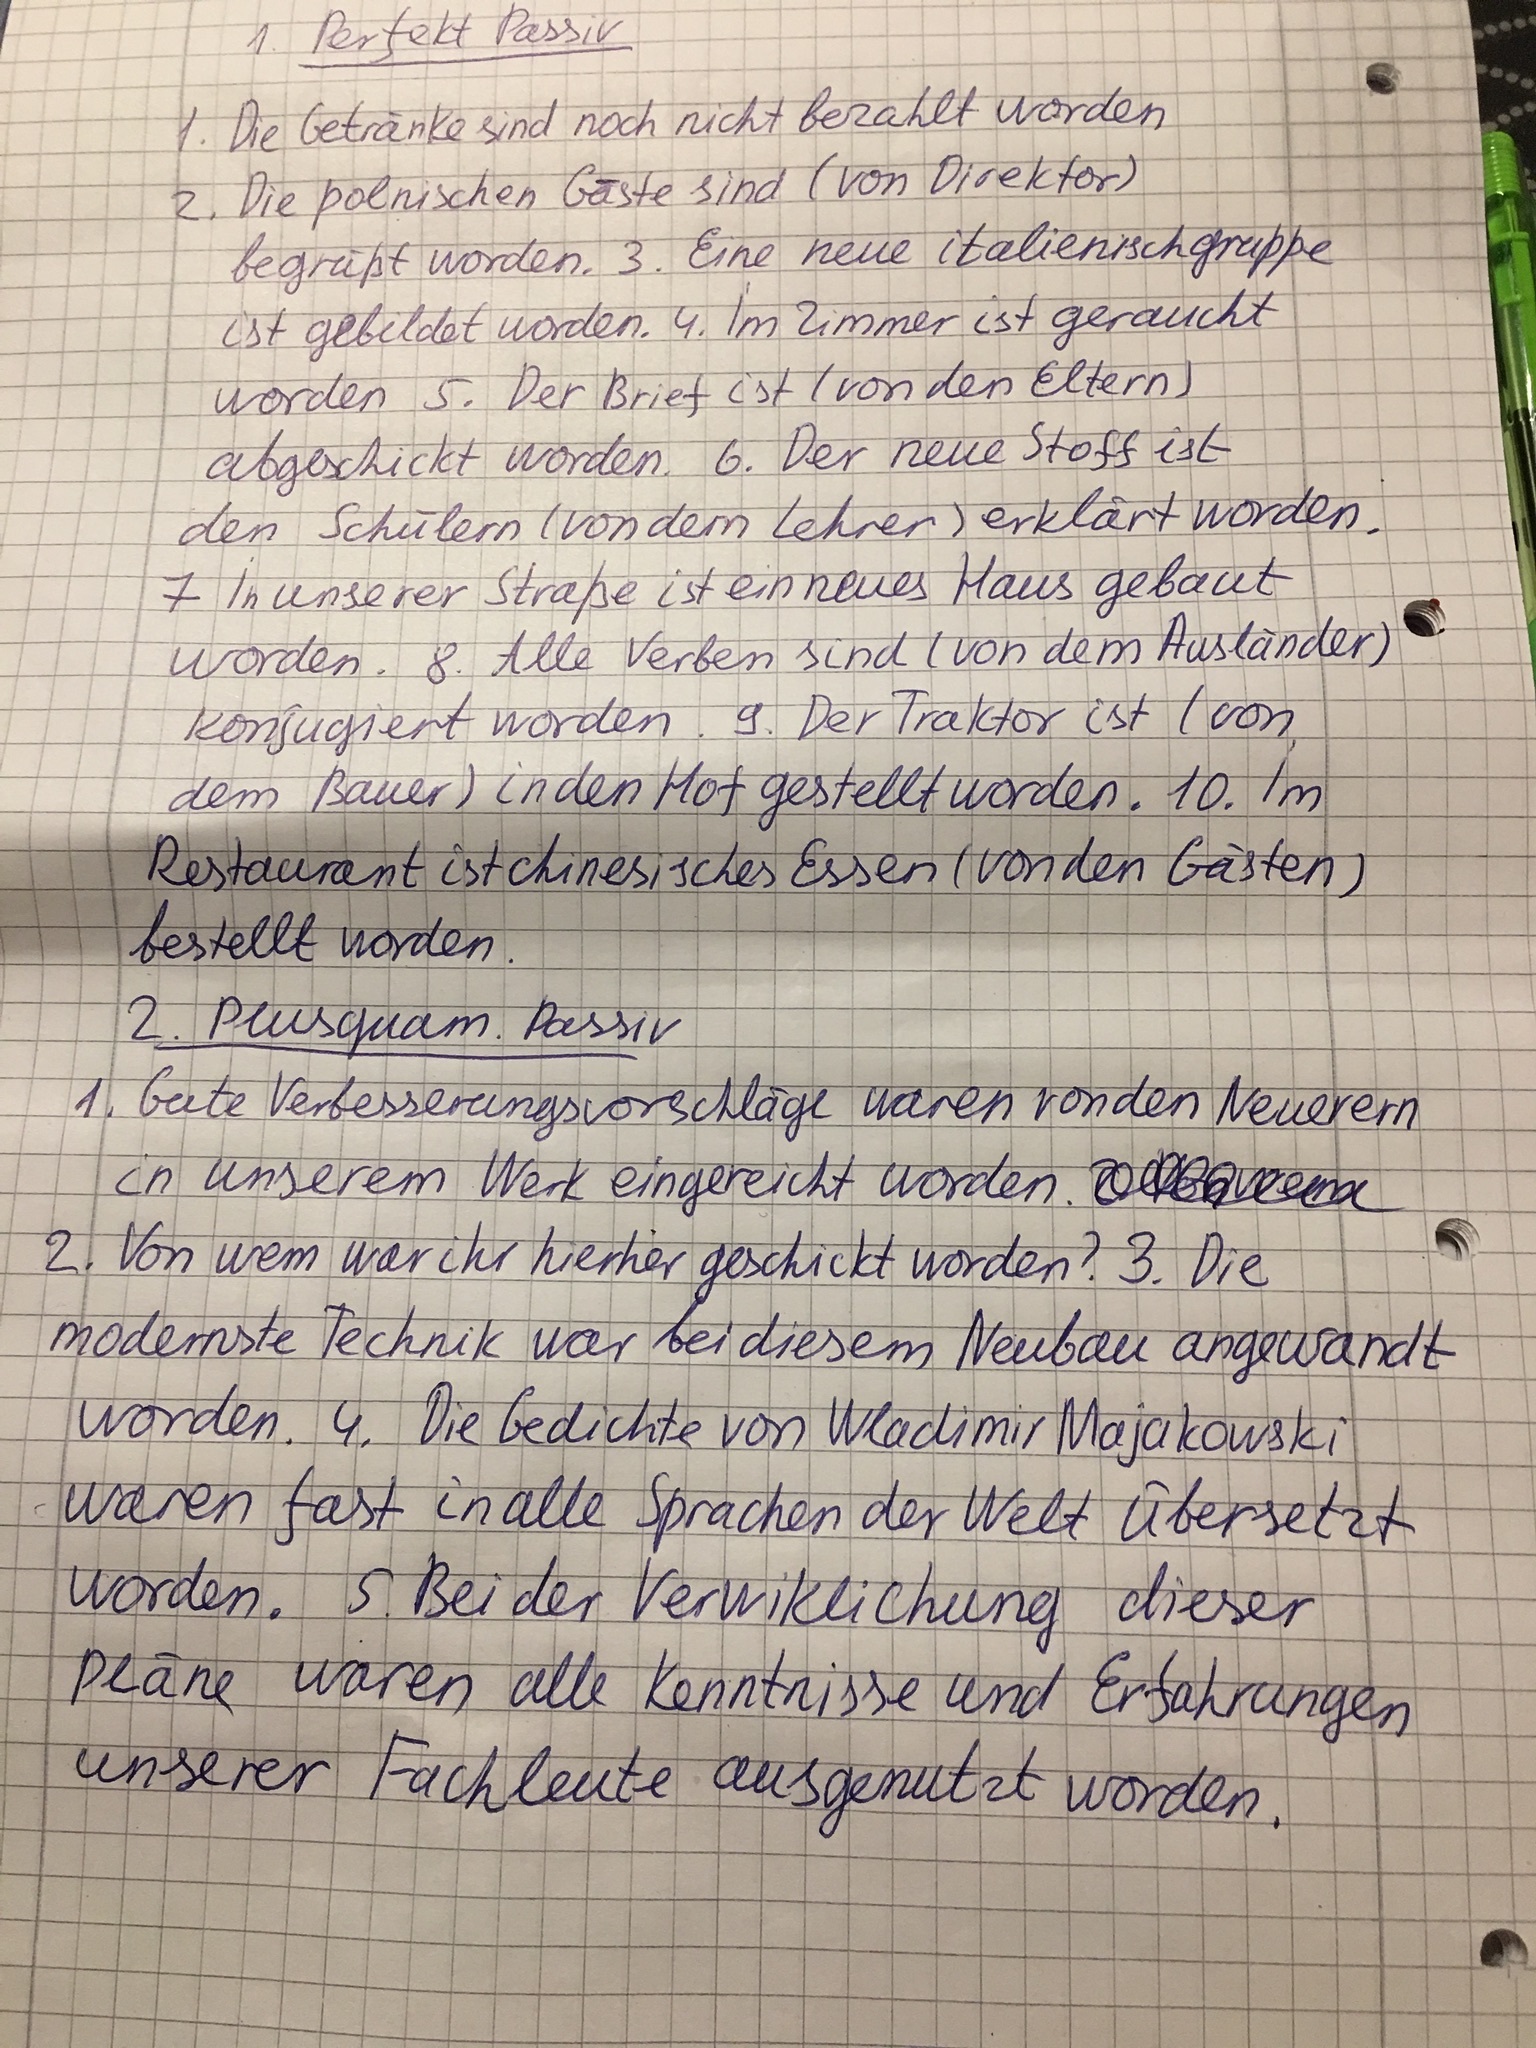 1. Perfekt Passiv
1. Die Getränke sind noch nicht bezahlt worden
2. Die polnischen Gäste sind (von Direktor)
begrüßt worden. 3. Eine neue italienischgruppe
ist gebildet worden. 4. Im Zimmer ist geraucht
worden 5. Der Brief ist (von den Eltern)
abgeschickt worden. 6. Der neue Stoff ist
den Schülern (von dem Lehrer) erklärt worden.
7 In unserer Straße ist ein neues Haus gebaut
worden. 8. Alle Verben sind (von dem Ausländer)
konjugiert worden. 9. Der Traktor ist (von
dem Bauer) in den Hof gestellt worden. 10. Im
Restaurant ist chinesisches Essen (von den Gästen)
bestellt worden.
2. Plusquam. Passiv
1. Gute Verbesserungsvorschläge waren von den Neuerern
in unserem Werk eingereicht worden.
2. Von wem war ihr hierher geschickt worden? 3. Die
modernste Technik war bei diesem Neubau angewandt
worden. 4. Die Gedichte von Wladimir Majakowski
waren fast in alle Sprachen der Welt übersetzt
worden. 5. Bei der Verwiklichung dieser
Pläne waren alle Kenntnisse und Erfahrungen
unserer Fachleute ausgenutzt worden.